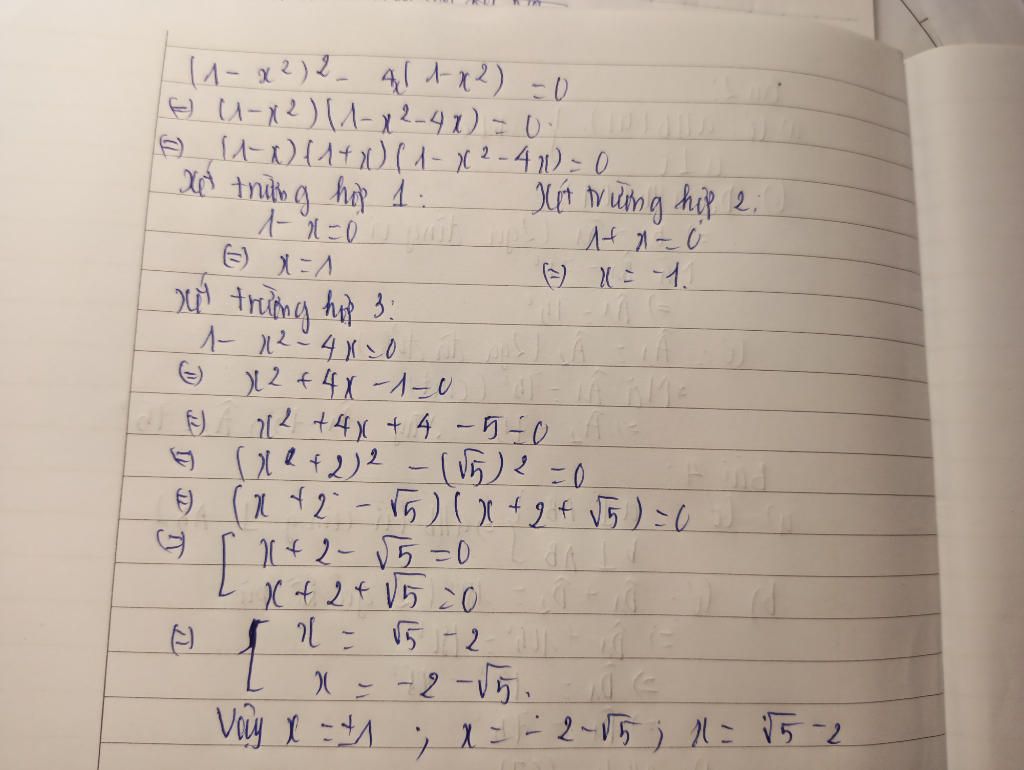 (1 - x²)² - 4x(1-x²) = 0
(=) (1-x²)(1-x²-4x) = 0.
(=) (1-x)(1+x)(1-x²-4x) = 0
Xét trường hợp 1: Xét trường hợp 2:
1- x=0 1+ x=0
(=) x=1 (=) x = -1.
Xét trường hợp 3:
1- x²-4x=0
(=) x² + 4x -1=0
(=) x² +4x + 4 - 5=0
(=) (x² +2)² - (√5)² =0
(=) (x +2 - √5)(x+2+ √5)=0
(=) [ x+2- √5 =0
x+2+ √5 =0
(=) [ x = √5 -2
x = -2 -√5.
Vậy x = ±1 ; x = - 2-√5 ; x = √5 -2